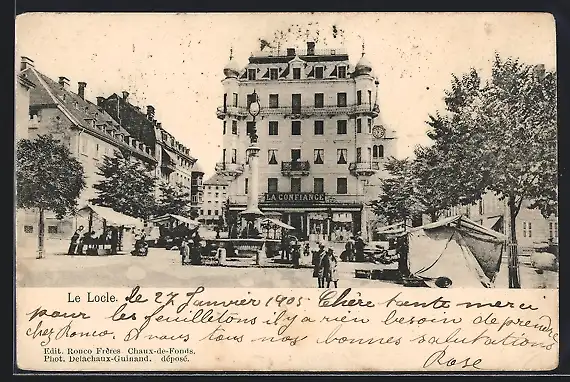 LA CONFIANCE
Le Locle. le 27 Janvier 1905 Chère tante merci
pour les feuilletons il y a rien besoin de prendre
chez Ronco. A vous tous nos bonnes salutations
Rose
Edit. Ronco Frères Chaux-de-Fonds.
Phot. Delachaux-Guinand. déposé.